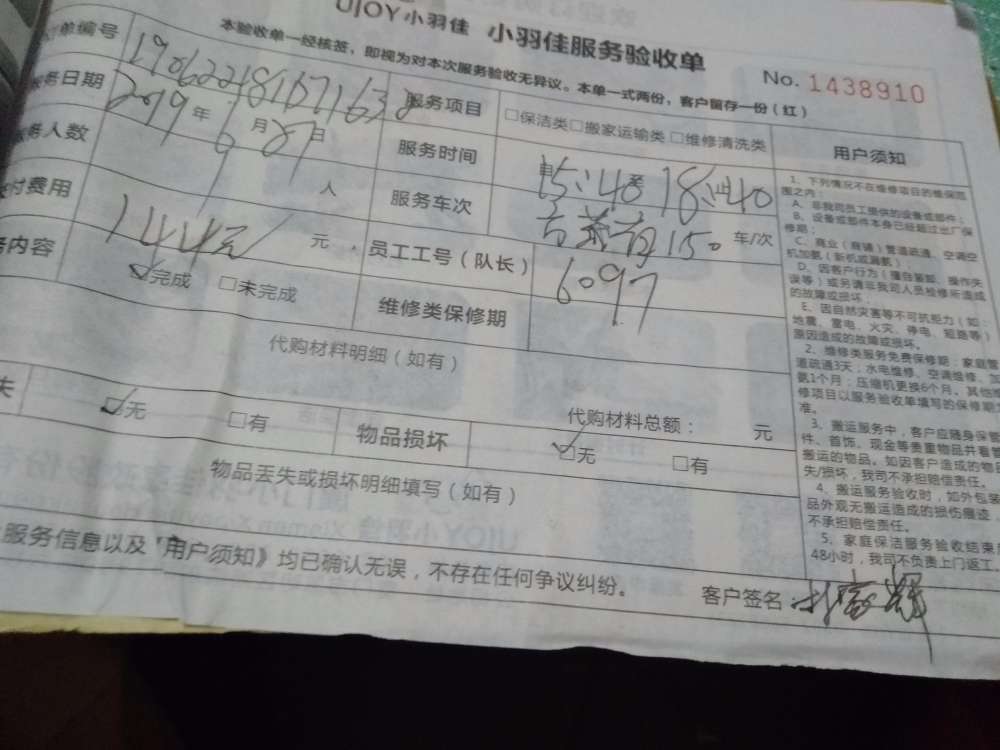 UJOY小羽佳 小羽佳服务验收单
本验收单一经核签，即视为对本次服务验收无异议。本单一式两份，客户留存一份（红）
No. 1438910
单编号
服务项目 □保洁类□搬家运输类□维修清洗类
务日期 2019年6月 日
服务时间 15:48 18:40
务人数 人
服务车次 150 车/次
付费用 144元 元
员工工号（队长） 6097
务内容 ☑完成 □未完成
维修类保修期
代购材料明细（如有）
代购材料总额： 元
失 ☑无 □有
物品损坏 ☑无 □有
物品丢失或损坏明细填写（如有）
服务信息以及《用户须知》均已确认无误，不存在任何争议纠纷。
客户签名：
用户须知
1、下列情况不在维修项目的维保范
围之内：
A、非我司员工提供的设备或部件；
B、设备或部件本身已经超过出厂保
修期；
C、商业（商铺）管道疏通、空调空
机加氨（新机或漏氨）
D、因客户行为（擅自装卸、操作失
误等）或另请非我司人员检修所造成
的故障或损坏；
E、因自然灾害等不可抗拒力（如：
地震、雷电、火灾、停电、短路等）
原因造成的故障或损坏。
2、维修类服务免费保修期：家庭管
道疏通3天；水电维修、空调维修、加
氨1个月；压缩机更换6个月。其他维
修项目以服务验收单填写的保修期
准。
3、搬运服务中，客户应随身保管
件、首饰、现金等贵重物品并看管
搬运的物品。如因客户造成的物品
失/损坏，我司不承担赔偿责任。
4、搬运服务验收时，如外包装
品外观无搬运造成的损伤痕迹，
不承担赔偿责任。
5、家庭保洁服务验收结束
48小时，我司不负责上门返工。